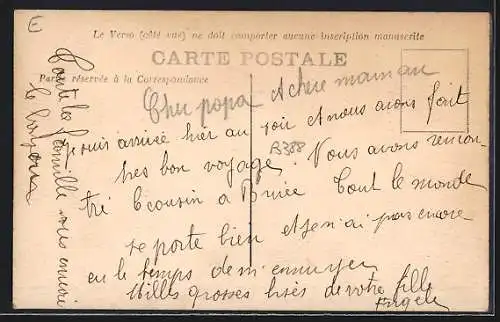 E
Le Verso (côté vue) ne doit comporter aucune inscription manuscrite
CARTE POSTALE
Partie réservée à la Correspondance
Cher papa et chere maman
Je suis arrivée hier au soir et nous avons fait
tres bon voyage. Nous avons rencon-
tré le cousin a Brive tout le monde
se porte bien et je n'ai pas encore
eu le temps de m'ennuyer
Milles grosses bises de votre fille
Angele
Toute la famille vous envoie
le bonjour
B388